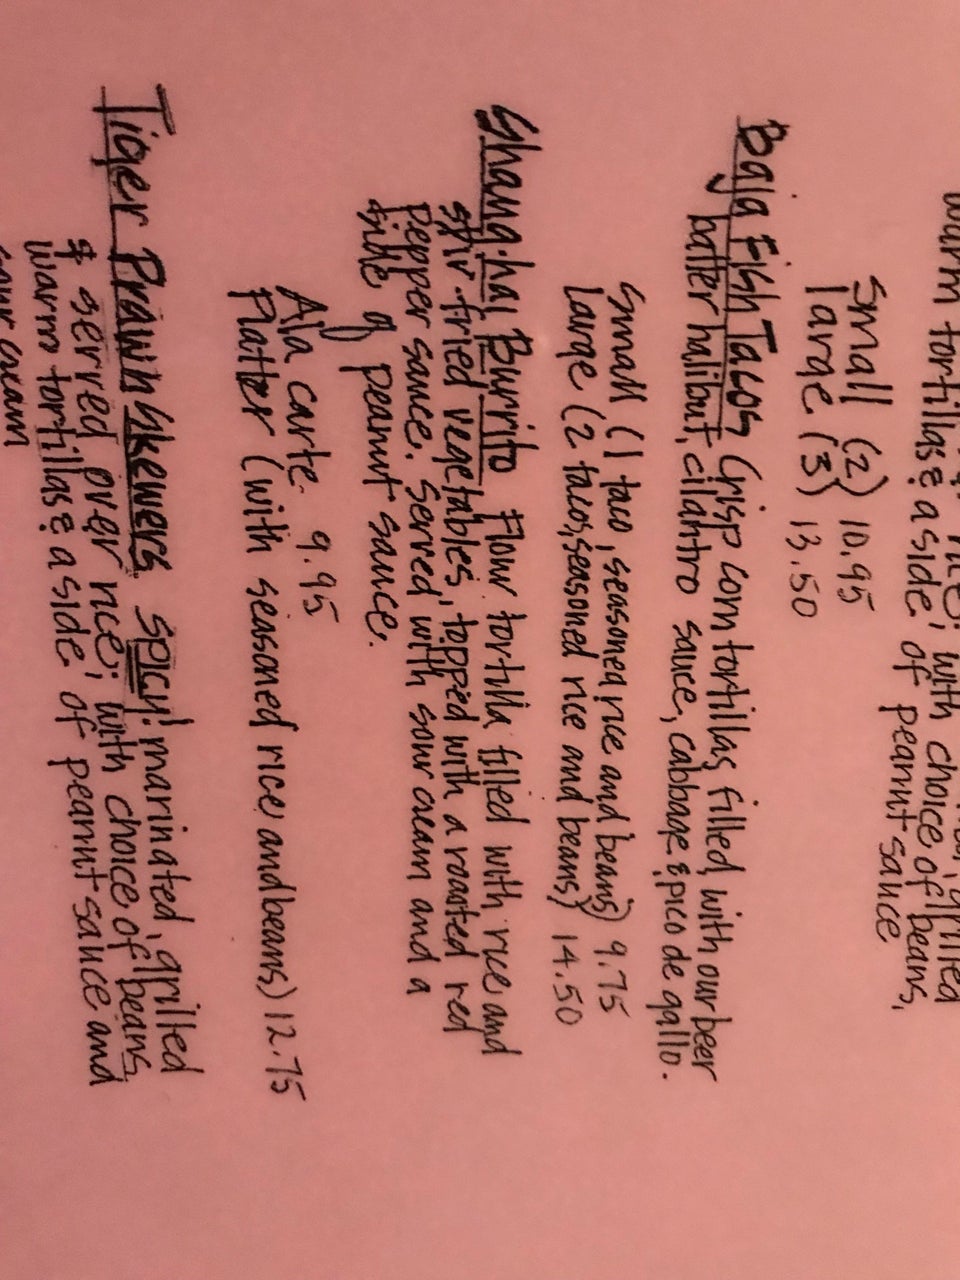 warm tortillas & a side of peanut sauce
Small (2) 10.95
large (3) 13.50
Baja Fish Tacos Crisp corn tortillas filled with our beer
batter halibut, cilantro sauce, cabbage & pico de gallo.
Small (1 taco, seasoned rice and beans) 9.75
Large (2 tacos, seasoned rice and beans) 14.50
Shanghai Burrito Flour tortilla filled with rice and
stir fried vegetables, topped with a roasted red
pepper sauce. Served with sour cream and a
side of peanut sauce.
Ala carte 9.95
Platter (with seasoned rice and beans) 12.75
Tiger Prawn Skewers spicy! marinated, grilled
& served over rice; with choice of beans,
warm tortillas & a side of peanut sauce and
sour cream